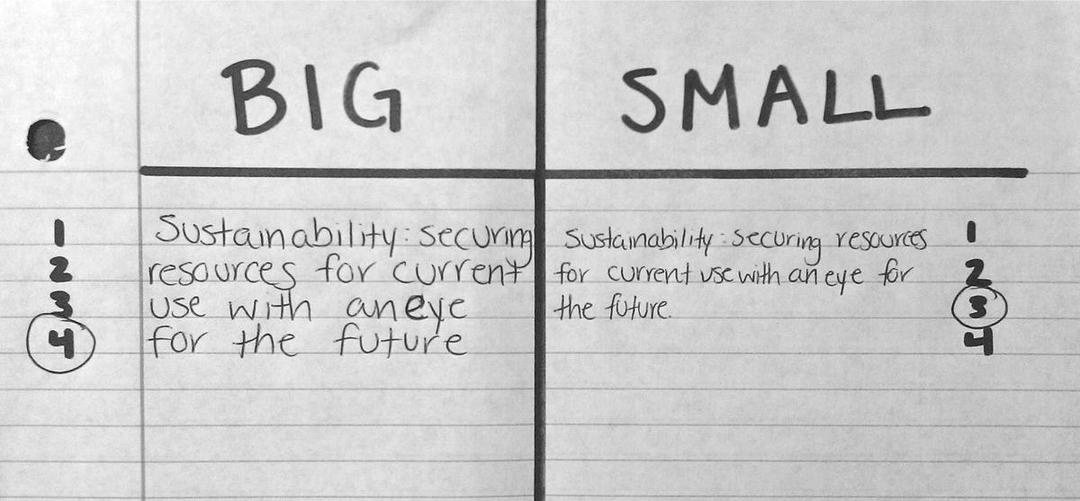 BIG
SMALL
1
2
3
4
Sustainability: securing
resources for current
use with an eye
for the future
Sustainability: securing resources
for current use with an eye for
the future.
1
2
3
4